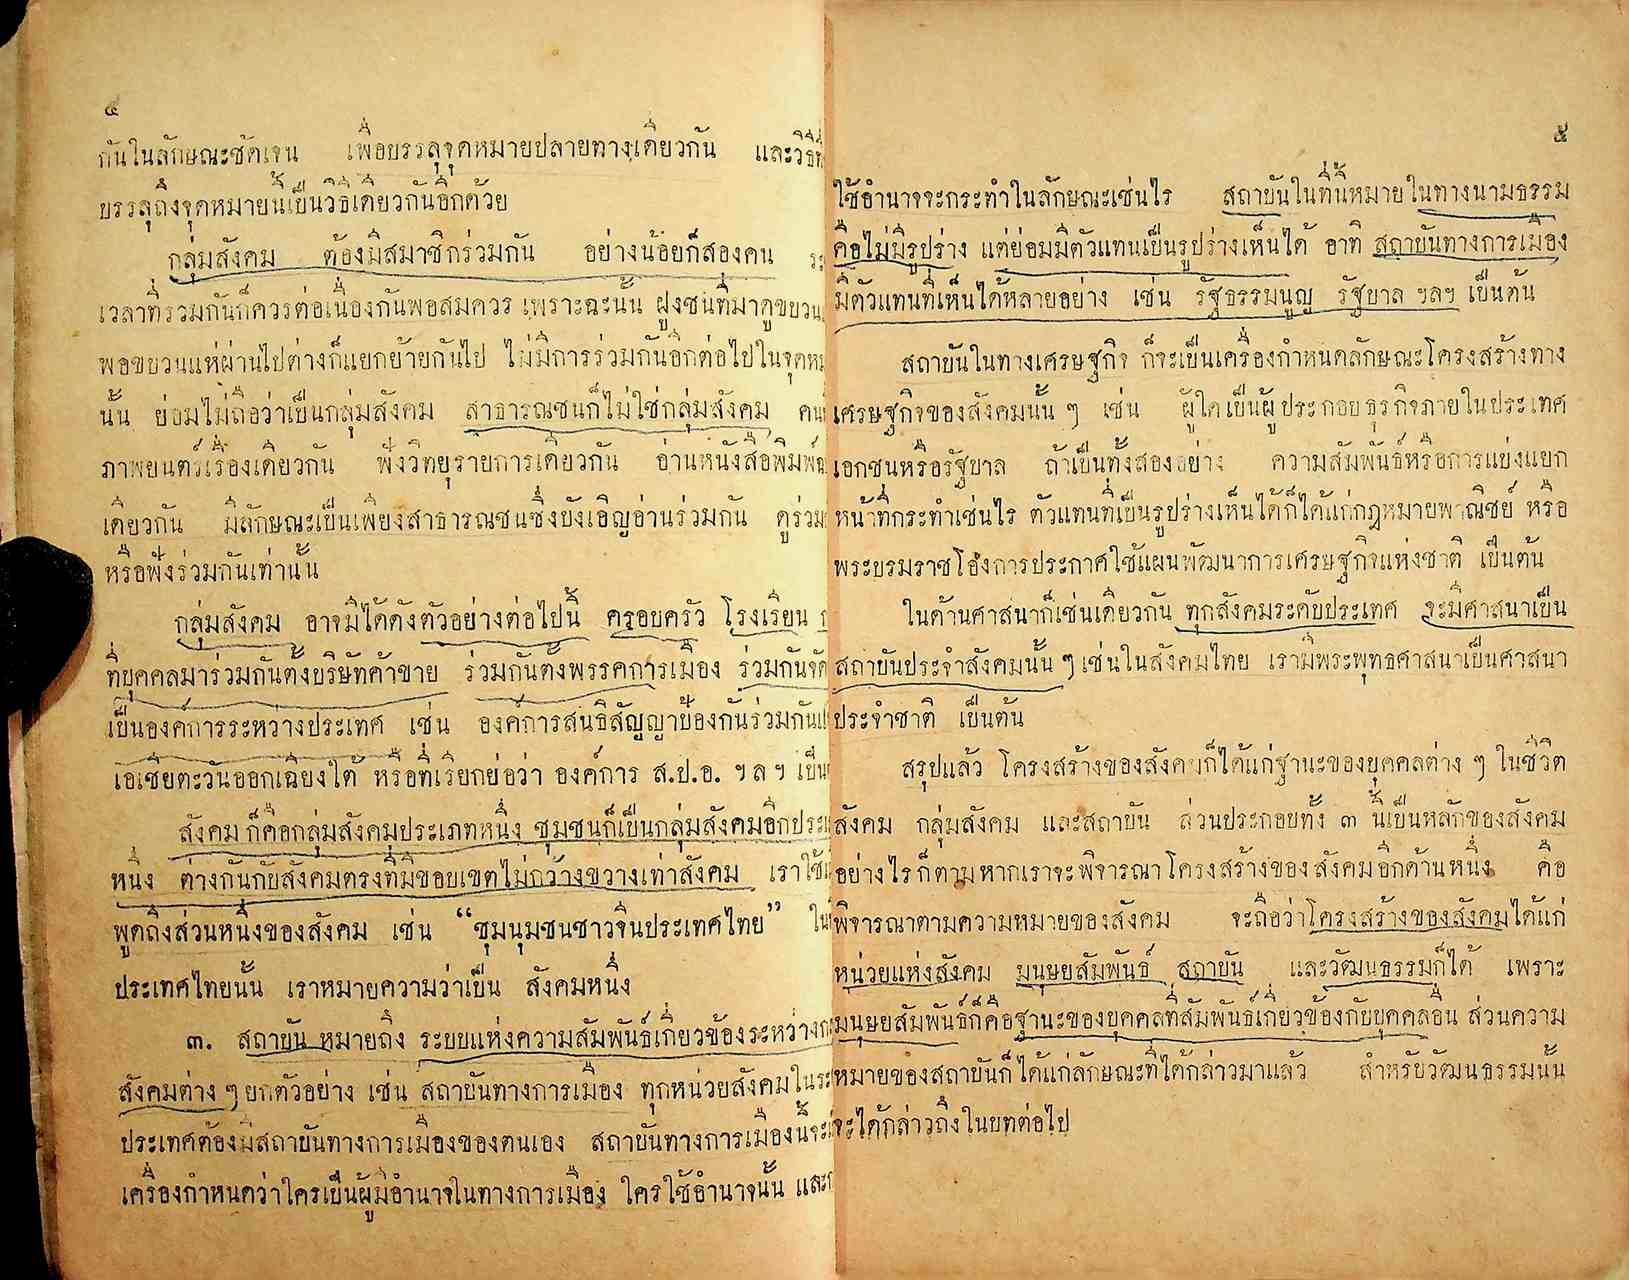 ๔
กันในลักษณะชัดเจน เพื่อบรรลุจุดหมายปลายทางเดียวกัน และวิธีที่
บรรลุถึงจุดหมายนี้เป็นวิธีเดียวกันอีกด้วย
กลุ่มสังคม ต้องมีสมาชิกร่วมกัน อย่างน้อยก็สองคน
เวลาที่ร่วมกันก็ควรต่อเนื่องกันพอสมควร เพราะฉะนั้น ฝูงชนที่มาดูขบวน
พอขบวนแห่ผ่านไปต่างก็แยกย้ายกันไป ไม่มีการร่วมกันอีกต่อไปในจุดหม
นั้น ย่อมไม่ถือว่าเป็นกลุ่มสังคม สาธารณชนก็ไม่ใช่กลุ่มสังคม คน
ภาพยนตร์เรื่องเดียวกัน ฟังวิทยุรายการเดียวกัน อ่านหนังสือพิมพ์
เดียวกัน มีลักษณะเป็นเพียงสาธารณชนซึ่งบังเอิญอ่านร่วมกัน ดูร่วม
หรือฟังร่วมกันเท่านั้น
กลุ่มสังคม อาจมีได้ดังตัวอย่างต่อไปนี้ ครอบครัว โรงเรียน
ที่บุคคลมาร่วมกันตั้งบริษัทค้าขาย ร่วมกันตั้งพรรคการเมือง ร่วมกันจัด
เป็นองค์การระหว่างประเทศ เช่น องค์การสนธิสัญญาป้องกันร่วมกัน
เอเชียตะวันออกเฉียงใต้ หรือที่เรียกย่อว่า องค์การ ส.ป.อ. ฯลฯ เป็น
สังคม ก็คือกลุ่มสังคมประเภทหนึ่ง ชุมชนก็เป็นกลุ่มสังคมอีกประเ
หนึ่ง ต่างกันกับสังคมตรงที่มีขอบเขตไม่กว้างขวางเท่าสังคม เราใช้
พูดถึงส่วนหนึ่งของสังคม เช่น “ชุมนุมชนชาวจีนประเทศไทย” ใน
ประเทศไทยนั้น เราหมายความว่าเป็น สังคมหนึ่ง
๓. สถาบัน หมายถึง ระบบแห่งความสัมพันธ์เกี่ยวข้องระหว่างก
สังคมต่าง ๆ ยกตัวอย่าง เช่น สถาบันทางการเมือง ทุกหน่วยสังคมในระ
ประเทศต้องมีสถาบันทางการเมืองของตนเอง สถาบันทางการเมืองนี้จะเ
เครื่องกำหนดว่าใครเป็นผู้มีอำนาจในทางการเมือง ใครใช้อำนาจนั้น และ
๕
ใช้อำนาจจะกระทำในลักษณะเช่นไร สถาบันในที่นี้หมายในทางนามธรรม
คือไม่มีรูปร่าง แต่ย่อมมีตัวแทนเป็นรูปร่างเห็นได้ อาทิ สถาบันทางการเมือง
มีตัวแทนที่เห็นได้หลายอย่าง เช่น รัฐธรรมนูญ รัฐบาล ฯลฯ เป็นต้น
สถาบันในทางเศรษฐกิจ ก็จะเป็นเครื่องกำหนดลักษณะโครงสร้างทาง
เศรษฐกิจของสังคมนั้น ๆ เช่น ผู้ใดเป็นผู้ประกอบธุรกิจภายในประเทศ
เอกชนหรือรัฐบาล ถ้าเป็นทั้งสองอย่าง ความสัมพันธ์หรือการแบ่งแยก
หน้าที่กระทำเช่นไร ตัวแทนที่เป็นรูปร่างเห็นได้ก็ได้แก่กฎหมายพาณิชย์ หรือ
พระบรมราชโองการประกาศใช้แผนพัฒนาการเศรษฐกิจแห่งชาติ เป็นต้น
ในด้านศาสนาก็เช่นเดียวกัน ทุกสังคมระดับประเทศ จะมีศาสนาเป็น
สถาบันประจำสังคมนั้น ๆ เช่นในสังคมไทย เรามีพระพุทธศาสนาเป็นศาสนา
ประจำชาติ เป็นต้น
สรุปแล้ว โครงสร้างของสังคมก็ได้แก่ฐานะของบุคคลต่าง ๆ ในชีวิต
สังคม กลุ่มสังคม และสถาบัน ส่วนประกอบทั้ง ๓ นี้เป็นหลักของสังคม
อย่างไรก็ตามหากเราจะพิจารณาโครงสร้างของสังคมอีกด้านหนึ่ง คือ
พิจารณาตามความหมายของสังคม จะถือว่าโครงสร้างของสังคมได้แก่
หน่วยแห่งสังคม มนุษยสัมพันธ์ สถาบัน และวัฒนธรรมก็ได้ เพราะ
มนุษยสัมพันธ์ก็คือฐานะของบุคคลที่สัมพันธ์เกี่ยวข้องกับบุคคลอื่น ส่วนความ
หมายของสถาบันก็ได้แก่ลักษณะที่ได้กล่าวมาแล้ว สำหรับวัฒนธรรมนั้น
จะได้กล่าวถึงในบทต่อไป